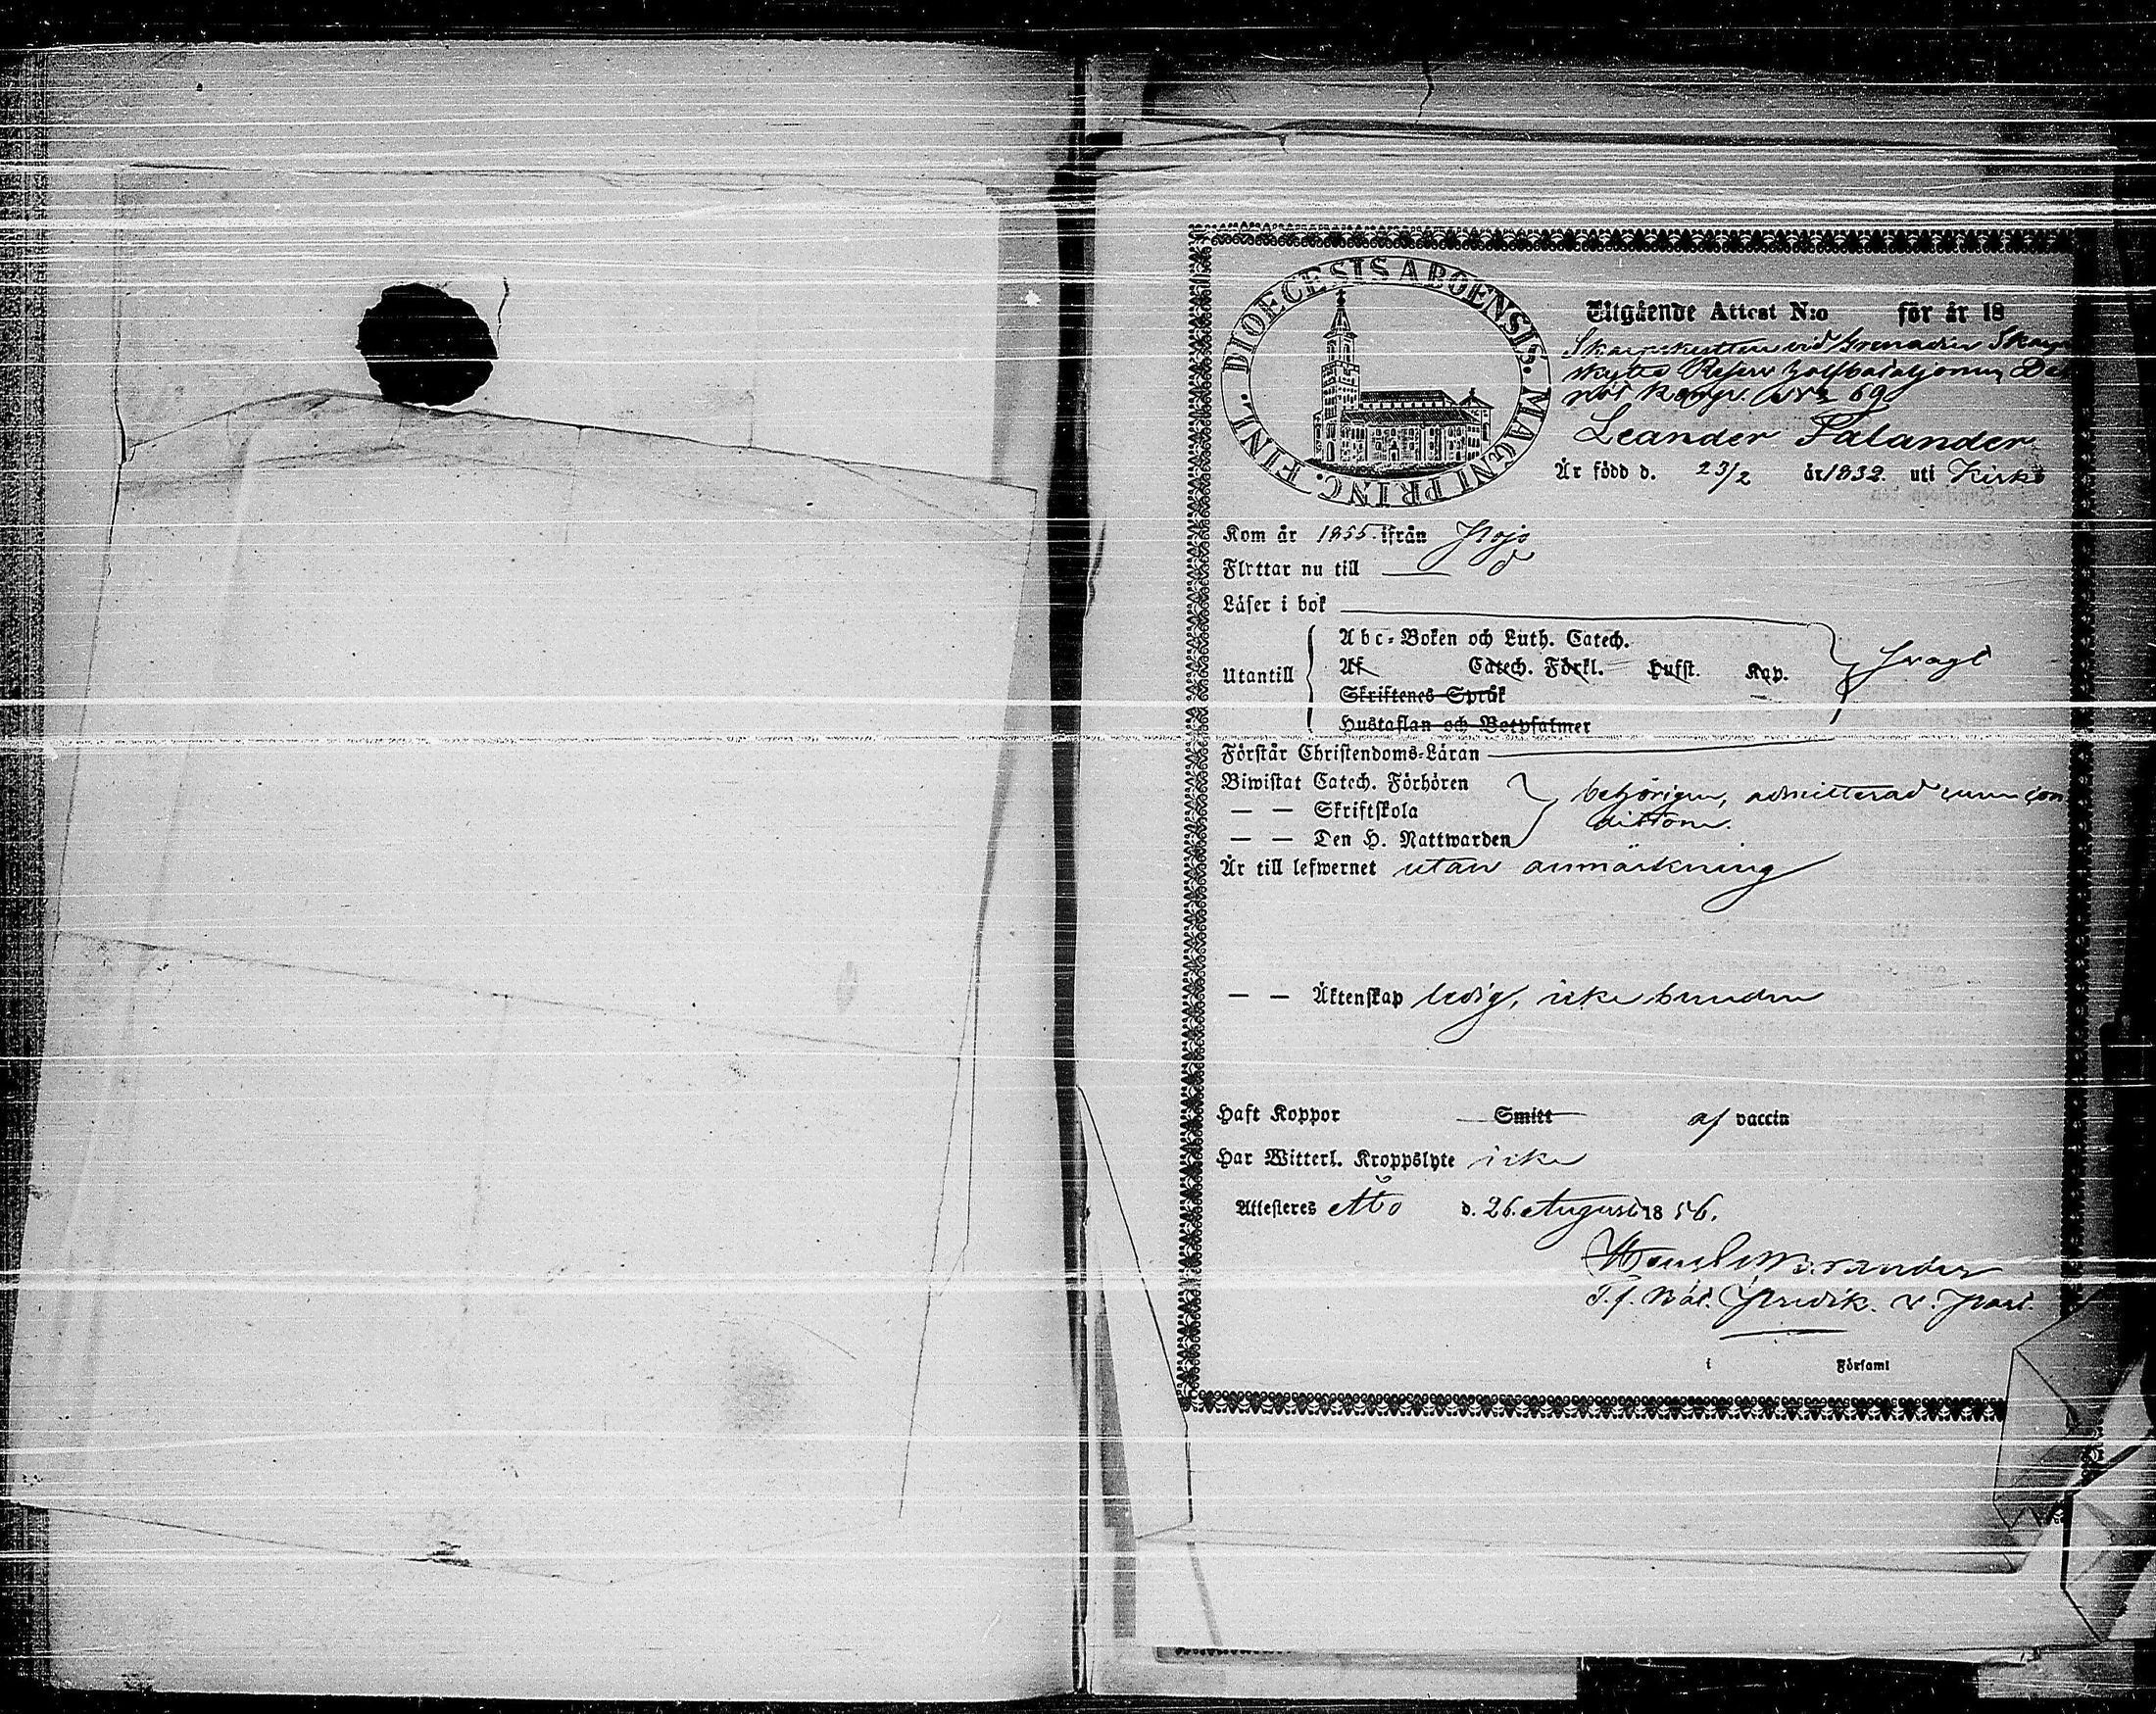 DIOECESIS ABOENSIS. MAGNI PRINC. FINL.
Utgående Attest N:o för år 18
Skarpskytten vid Grenadier Skarp
skytte Reserv Halfbataljonen De
pot Komp. No 69
Leander Palander
Är född d. 23/2 år 1832. uti Kisko
Kom år 1855. ifrån Pojo
Flyttar nu till —
Läser i bok
Utantill
Abc-Boken och Luth. Catech.
Af Catech. Förkl. Hufst. Kap.
Skriftenes Språk
Hustaflan och Botpsalmer
svagt
Förstår Christendoms-Läran
Biwistat Catech. Förhören
— — Skriftskola
— — Den H. Nattwarden
behörigen, admitterad cum con
ditione.
Är till lefwernet utan anmärkning
— — Äktenskap ledig, icke bunden
Haft Koppor Smitt af vaccin
Har Witterl. Kroppslyte icke
Attesteres Åbo d. 26. August 1856.
T. f. Bat. Predik. v. Past.
i Församl